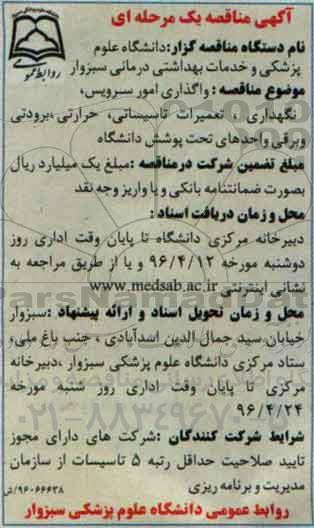 آگهی مناقصه یک مرحله ای
روابط عمومی
نام دستگاه مناقصه گزار:دانشگاه علوم
پزشکی و خدمات بهداشتی درمانی سبزوار
موضوع مناقصه : واگذاری امور سرویس،
نگهداری ، تعمیرات تاسیساتی، حرارتی،برودتی
وبرقی واحدهای تحت پوشش دانشگاه
مبلغ تضمین شرکت درمناقصه :مبلغ یک میلیارد ریال
بصورت ضمانتنامه بانکی و یا واریز وجه نقد
محل و زمان دریافت اسناد :
دبیرخانه مرکزی دانشگاه تا پایان وقت اداری روز
دوشنبه مورخه ۹۶/۴/۱۲ و یا از طریق مراجعه به
نشانی اینترنتی www.medsab.ac.ir
محل و زمان تحویل اسناد و ارائه پیشنهاد :سبزوار
خیابان سید جمال الدین اسدآبادی ، جنب باغ ملی،
ستاد مرکزی دانشگاه علوم پزشکی سبزوار ،دبیرخانه
مرکزی تا پایان وقت اداری روز شنبه مورخه
۹۶/۴/۲۴
شرایط شرکت کنندگان :شرکت های دارای مجوز
تایید صلاحیت حداقل رتبه ۵ تاسیسات از سازمان
مدیریت و برنامه ریزی
۹۶۰۶۶۶۳۸/ش
روابط عمومی دانشگاه علوم پزشکی سبزوار
ParsNamadData
۰۲۱-۸۸۳۴۹۶۷۰